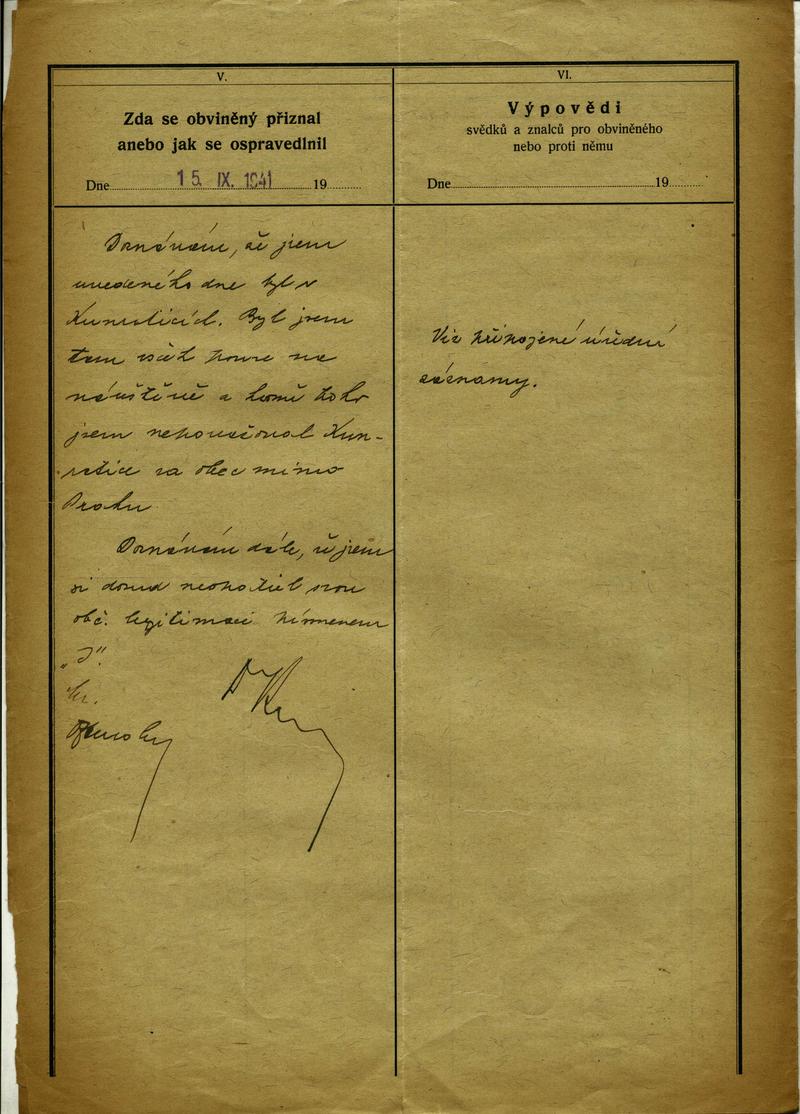 V.
Zda se obviněný přiznal
anebo jak se ospravedlnil
Dne 15. IX. 1941 19
Doznávám, že jsem
uvedeného dne byl v
Kunraticích. Byl jsem
tam však pouze na
návštěvě a kromě toho
jsem nepovažoval Kun-
ratice za obec mimo
Prahu
Doznávám dále, že jsem
si dosud neopatřil svou
obč. legitimaci písmenem
„J“.
VI.
Výpovědi
svědků a znalců pro obviněného
nebo proti němu
Dne 19
Viz připojené úřední
záznamy.